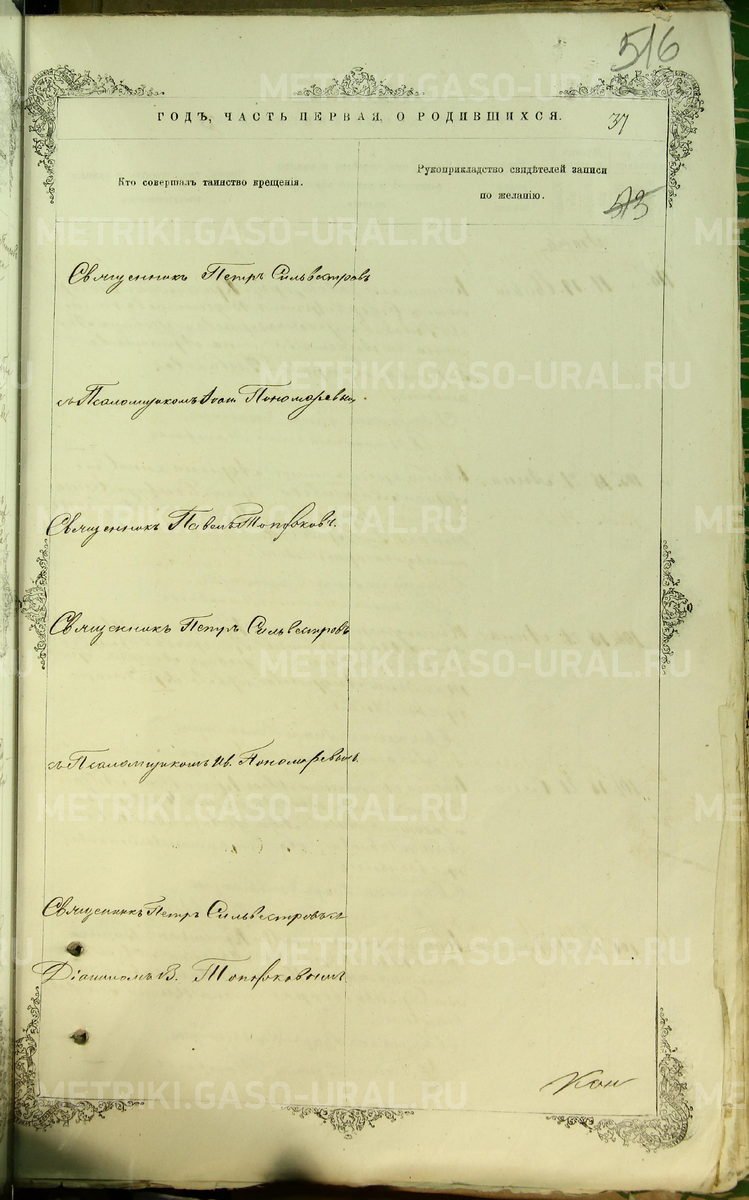 516
ГОДЪ, ЧАСТЬ ПЕРВАЯ, О РОДИВШИХСЯ.
37
Кто совершалъ таинство крещенія.
Рукоприкладство свидѣтелей записи
по желанію.
513
Священникъ Петръ Сильвестровъ
съ Псаломщикомъ Іоан. Пономаревым.
Священникъ Павелъ Топорковъ.
Священникъ Петръ Сильвестровъ
съ Псаломщикомъ Ив. Пономаревымъ.
Священникъ Петръ Сильвестровъ съ
Діакономъ В. Топорковымъ
Кон
METRIKI.GASO-URAL.RU